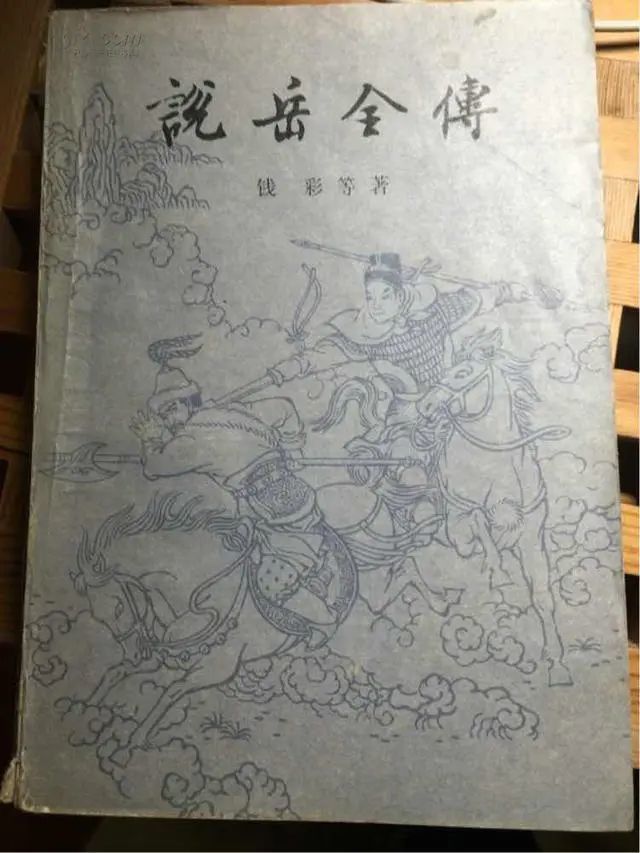 說岳全傳
钱彩等著